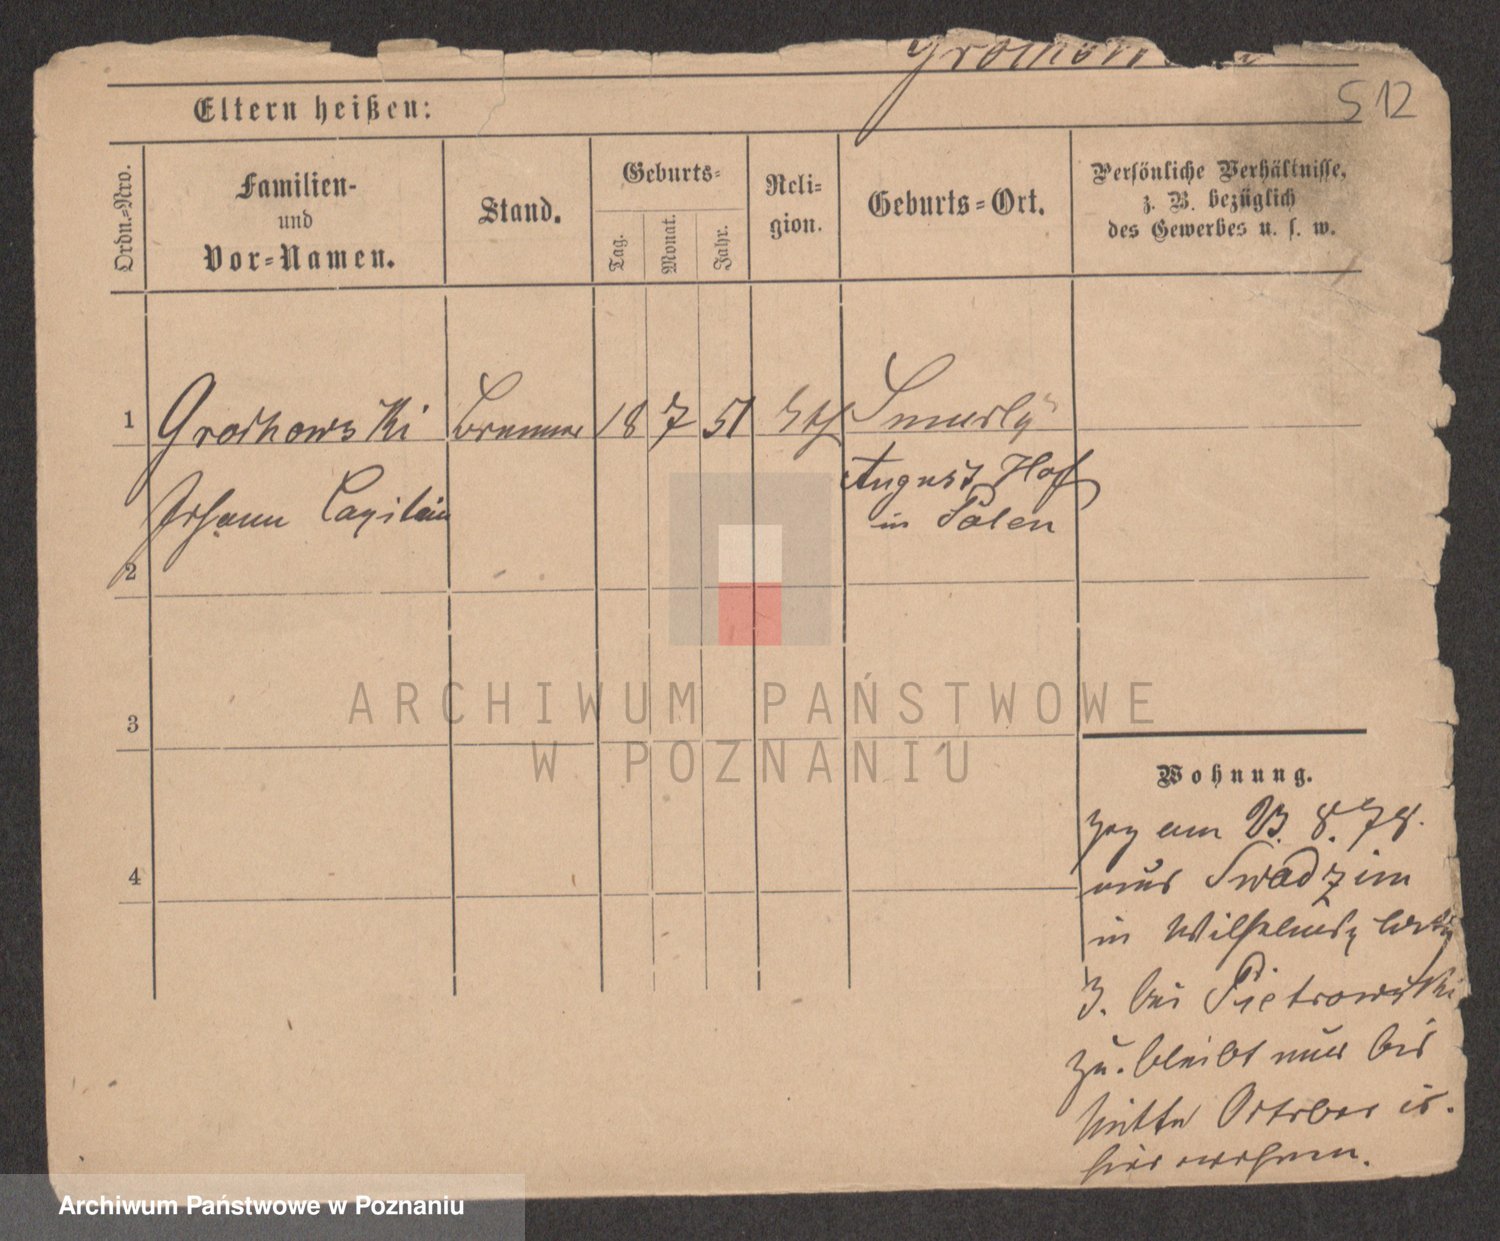 512
Eltern heißen:
Ordn.=Nro.
Familien-
und
Vor=Namen.
Stand.
Geburts=
Tag.
Monat.
Jahr.
Reli=
gion.
Geburts=Ort.
Persönliche Verhältnisse,
z. B. bezüglich
des Gewerbes u. s. w.
1
Grochowski
Brenner
18 7 51
kth
Johann
August Hof
in Polen
2
3
4
Wohnung.
zog am 8. 78.
aus Swadzim
in
3. bei Pietrowski
zu. bleibt nur bis
Mitte October
hier wohnen.
ARCHIWUM PAŃSTWOWE
W POZNANIU
Archiwum Państwowe w Poznaniu